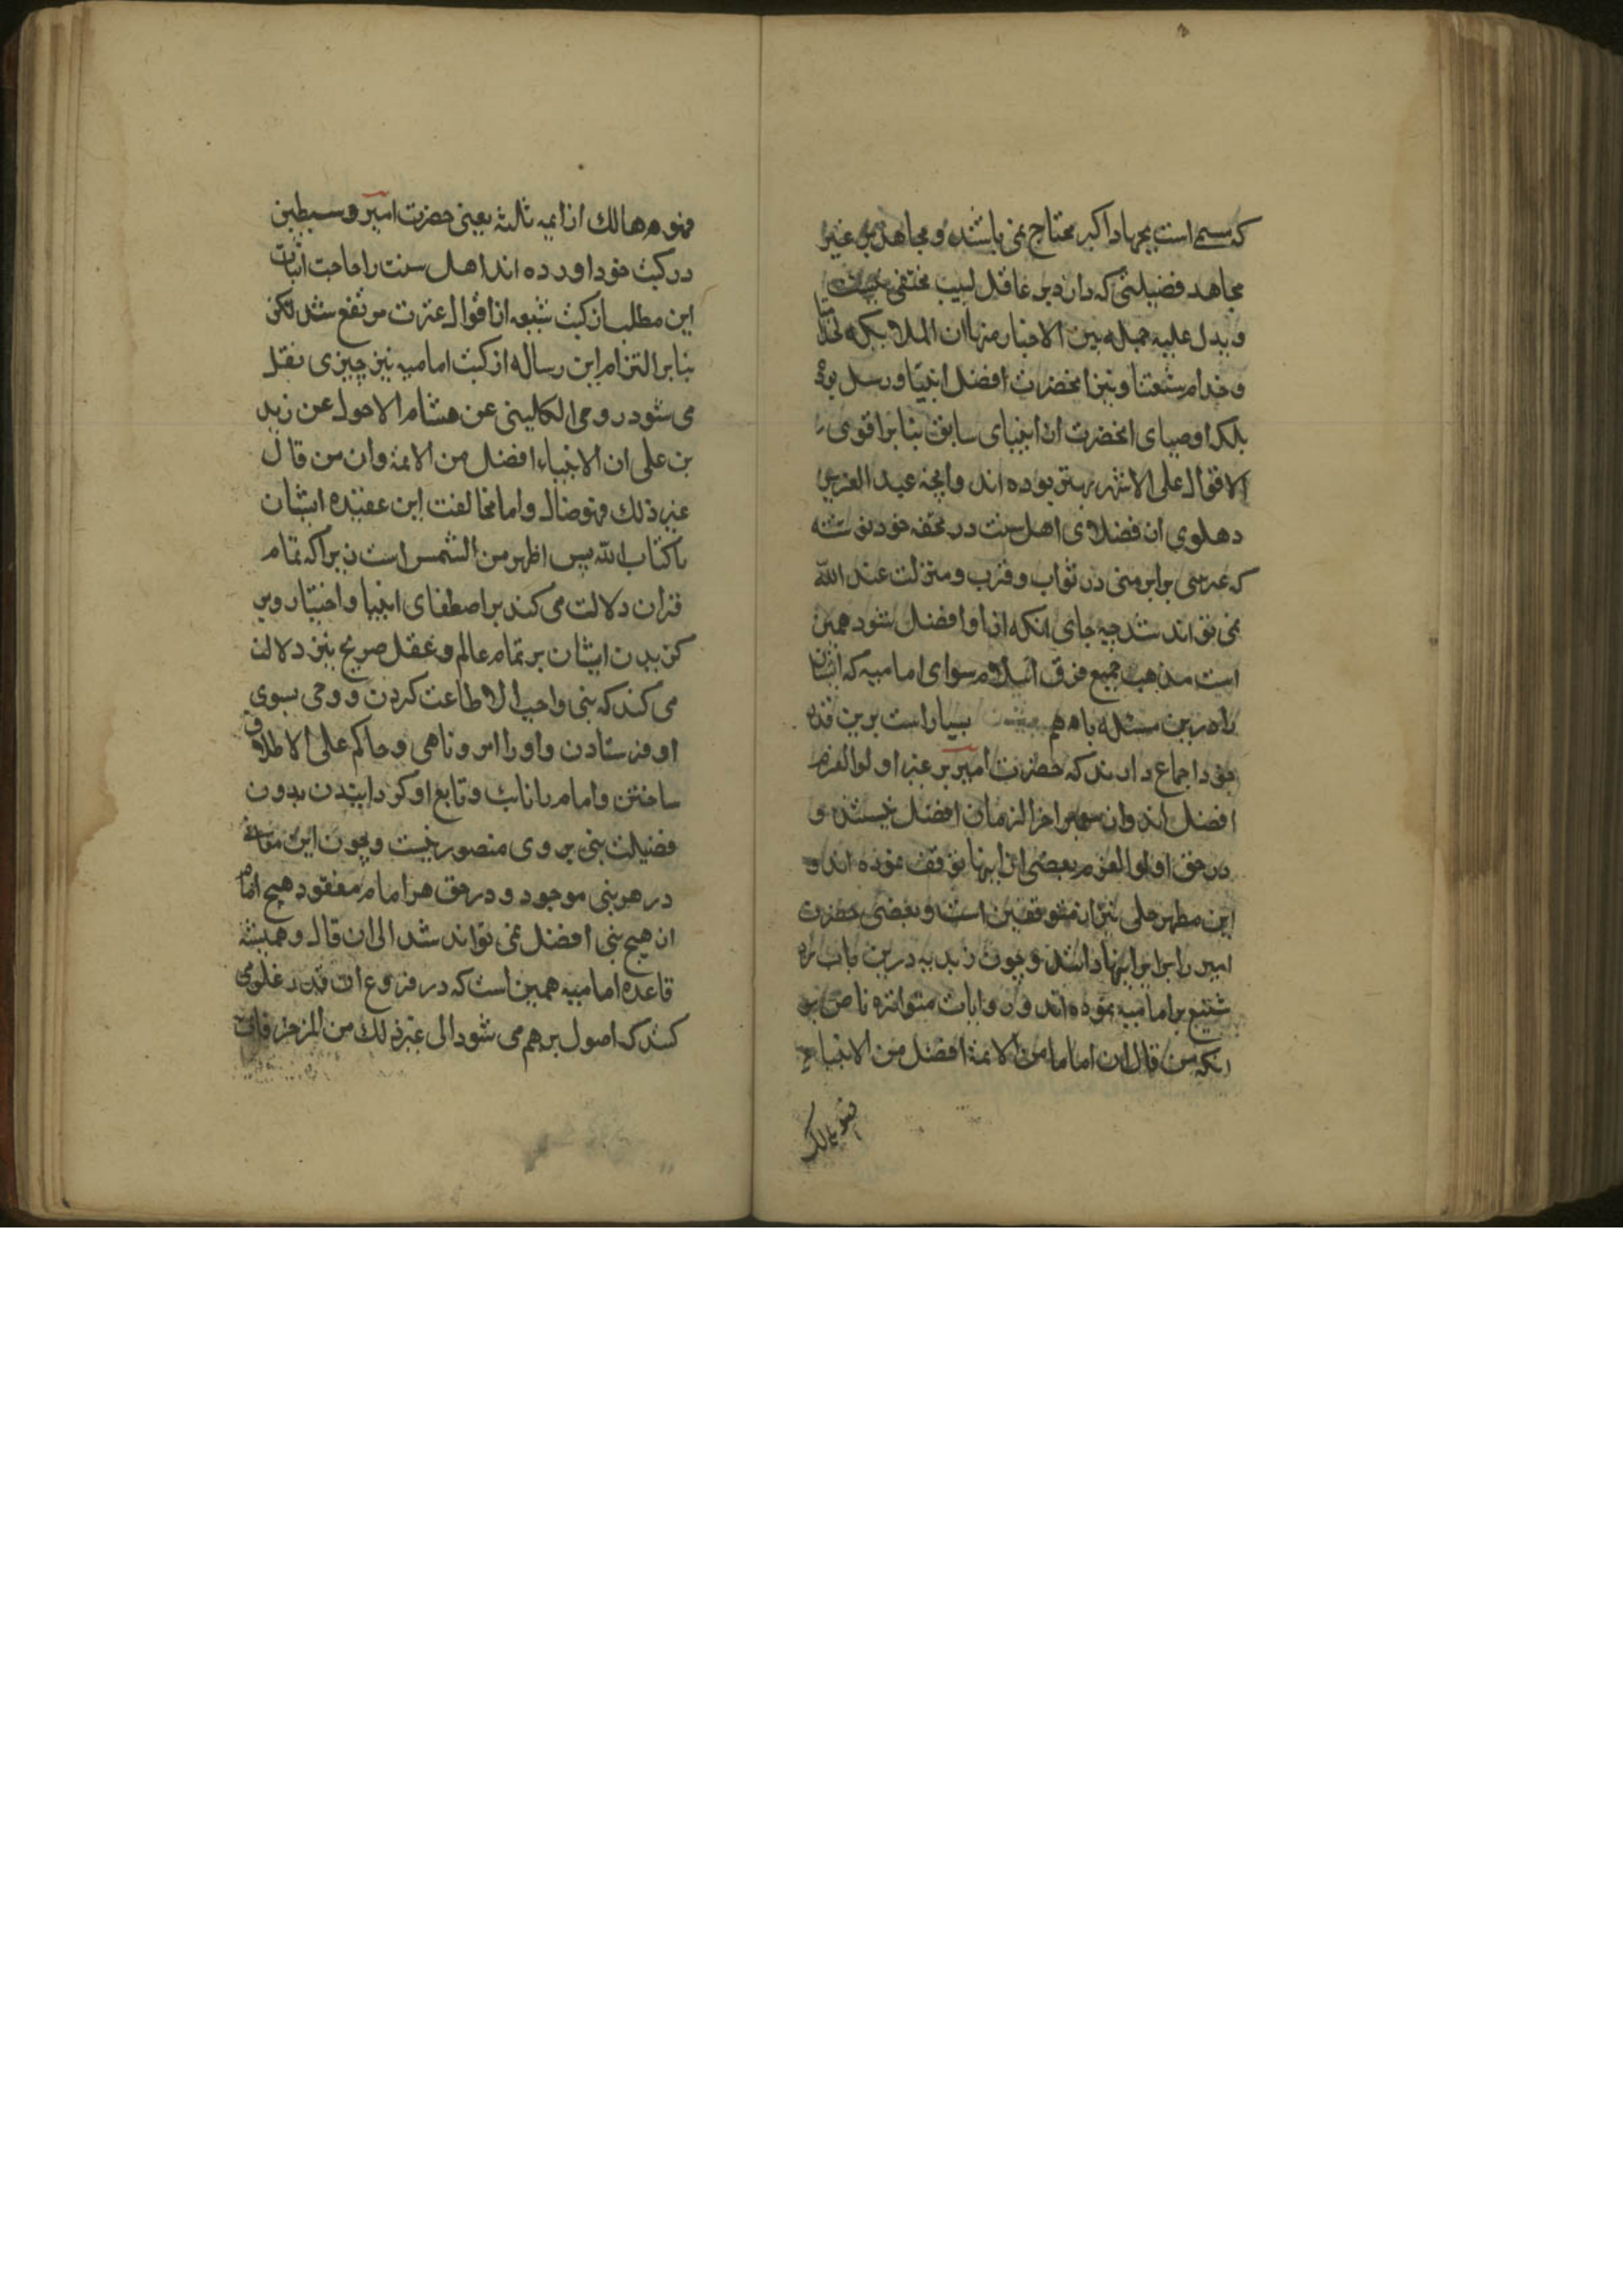 که مسمی است بجهاد اکبر محتاج نمی باشند و مجاهد بر غیر
مجاهد فضیلتی که دارد بر عاقل لبیب مختفی نیست
و یدل علیه جمله من الاخبار منها ان الملائکه لخدامنا
و خدام شیعتنا و نیز انحضرت افضل انبیا و رسل بوده
بلکه اوصیای انحضرت از انبیای سابق بنا بر اقوی
الاقوال علی الاشهر بهتر بوده اند و انچه عبد العزیز
دهلوی از فضلای اهل سنت در تحفه خود نوشته
که غیر نبی برابر نبی در ثواب و قرب و منزلت عند الله
نمی تواند شد چه جای انکه از او افضل شود همین
است مذهب جمیع فرق اسلام سوای امامیه که ایشان
را درین مسئله باهم بسیار است برین قدر
خود اجماع دارند که حضرت امیر بر غیر اولو العزم
افضل اند و از پیغمبر اخر الزمان افضل نیستند و
در حق اولو العزم بعضی از اینها توقف نموده اند و
ابن مطهر حلی نیز از متوقفین است و بعضی حضرت
امیر را برابر اینها دانند و چون زیدیه درین باب رد
شنیع بر امامیه نموده اند و روایات متواتره ناص بر
انکه من قال ان اماما من الائمة افضل من الانبیاء
فهو هالک
فهو هالك از ایمه ثلثه یعنی حضرت امیر و سبطین
در کتب خود اورده اند اهل سنت را حاجت اثبات
این مطلب از کتب شیعه از اقوال عترت مرتفع شد لکن
بنا بر التزام این رساله از کتب امامیه نیز چیزی نقل
می شود روی الکلینی عن هشام الاحول عن زید
بن علی ان الانبیاء افضل من الائمة وان من قال
غیر ذلك فهو ضال و اما مخالفت این عقیده ایشان
با کتاب الله پس اظهر من الشمس است زیراکه تمام
قران دلالت می کند بر اصطفای انبیا و اختیار و بر
کزیدن ایشان بر تمام عالم و عقل صریح نیز دلالت
می کند که نبی واجب الاطاعت کردن و وحی بسوی
او فرستادن و او را امر و ناهی و حاکم علی الاطلاق
ساختن و امام را نائب و تابع او کردانیدن بدون
فضیلت نبی بر وی متصور نیست و چون این معانی
در هر نبی موجود و در حق هر امام مفقود هیچ امام
از هیچ نبی افضل نمی تواند شد الی ان قال و همیشه
قاعده امامیه همین است که در فروع ان قدر غلو می
کنند که اصول برهم می شود الی غیر ذلك من المزخرفات